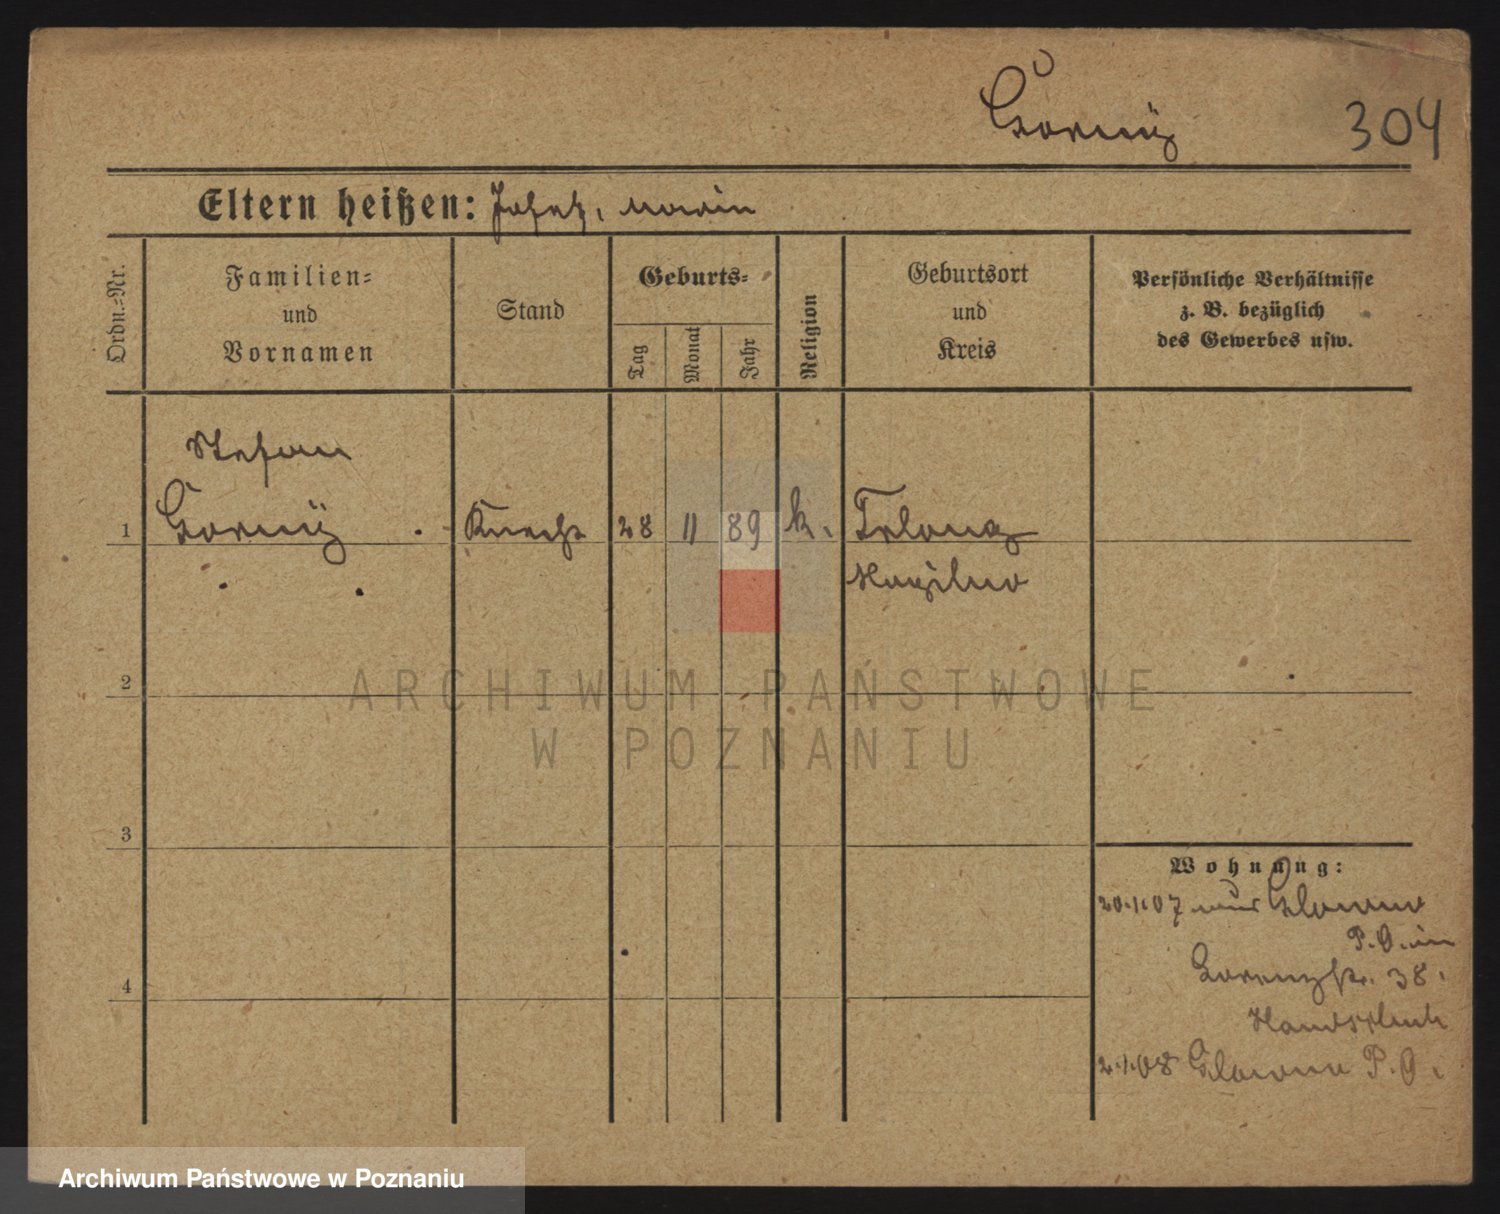 Górny 304
Eltern heißen: Josef, Marie
Ordn.-Nr.
Familien-
und
Vornamen
Stand
Geburts-
Tag
Monat
Jahr
Religion
Geburtsort
und
Kreis
Persönliche Verhältnisse
z. B. bezüglich
des Gewerbes usw.
Stefan
1 Górny Knecht 28 11 89 k.
2
3
4
ARCHIWUM PAŃSTWOWE
W POZNANIU
Wohnung:
20.1.07 Glowno
P.O.
38.
2.1.08 Glowno P.O.
Archiwum Państwowe w Poznaniu